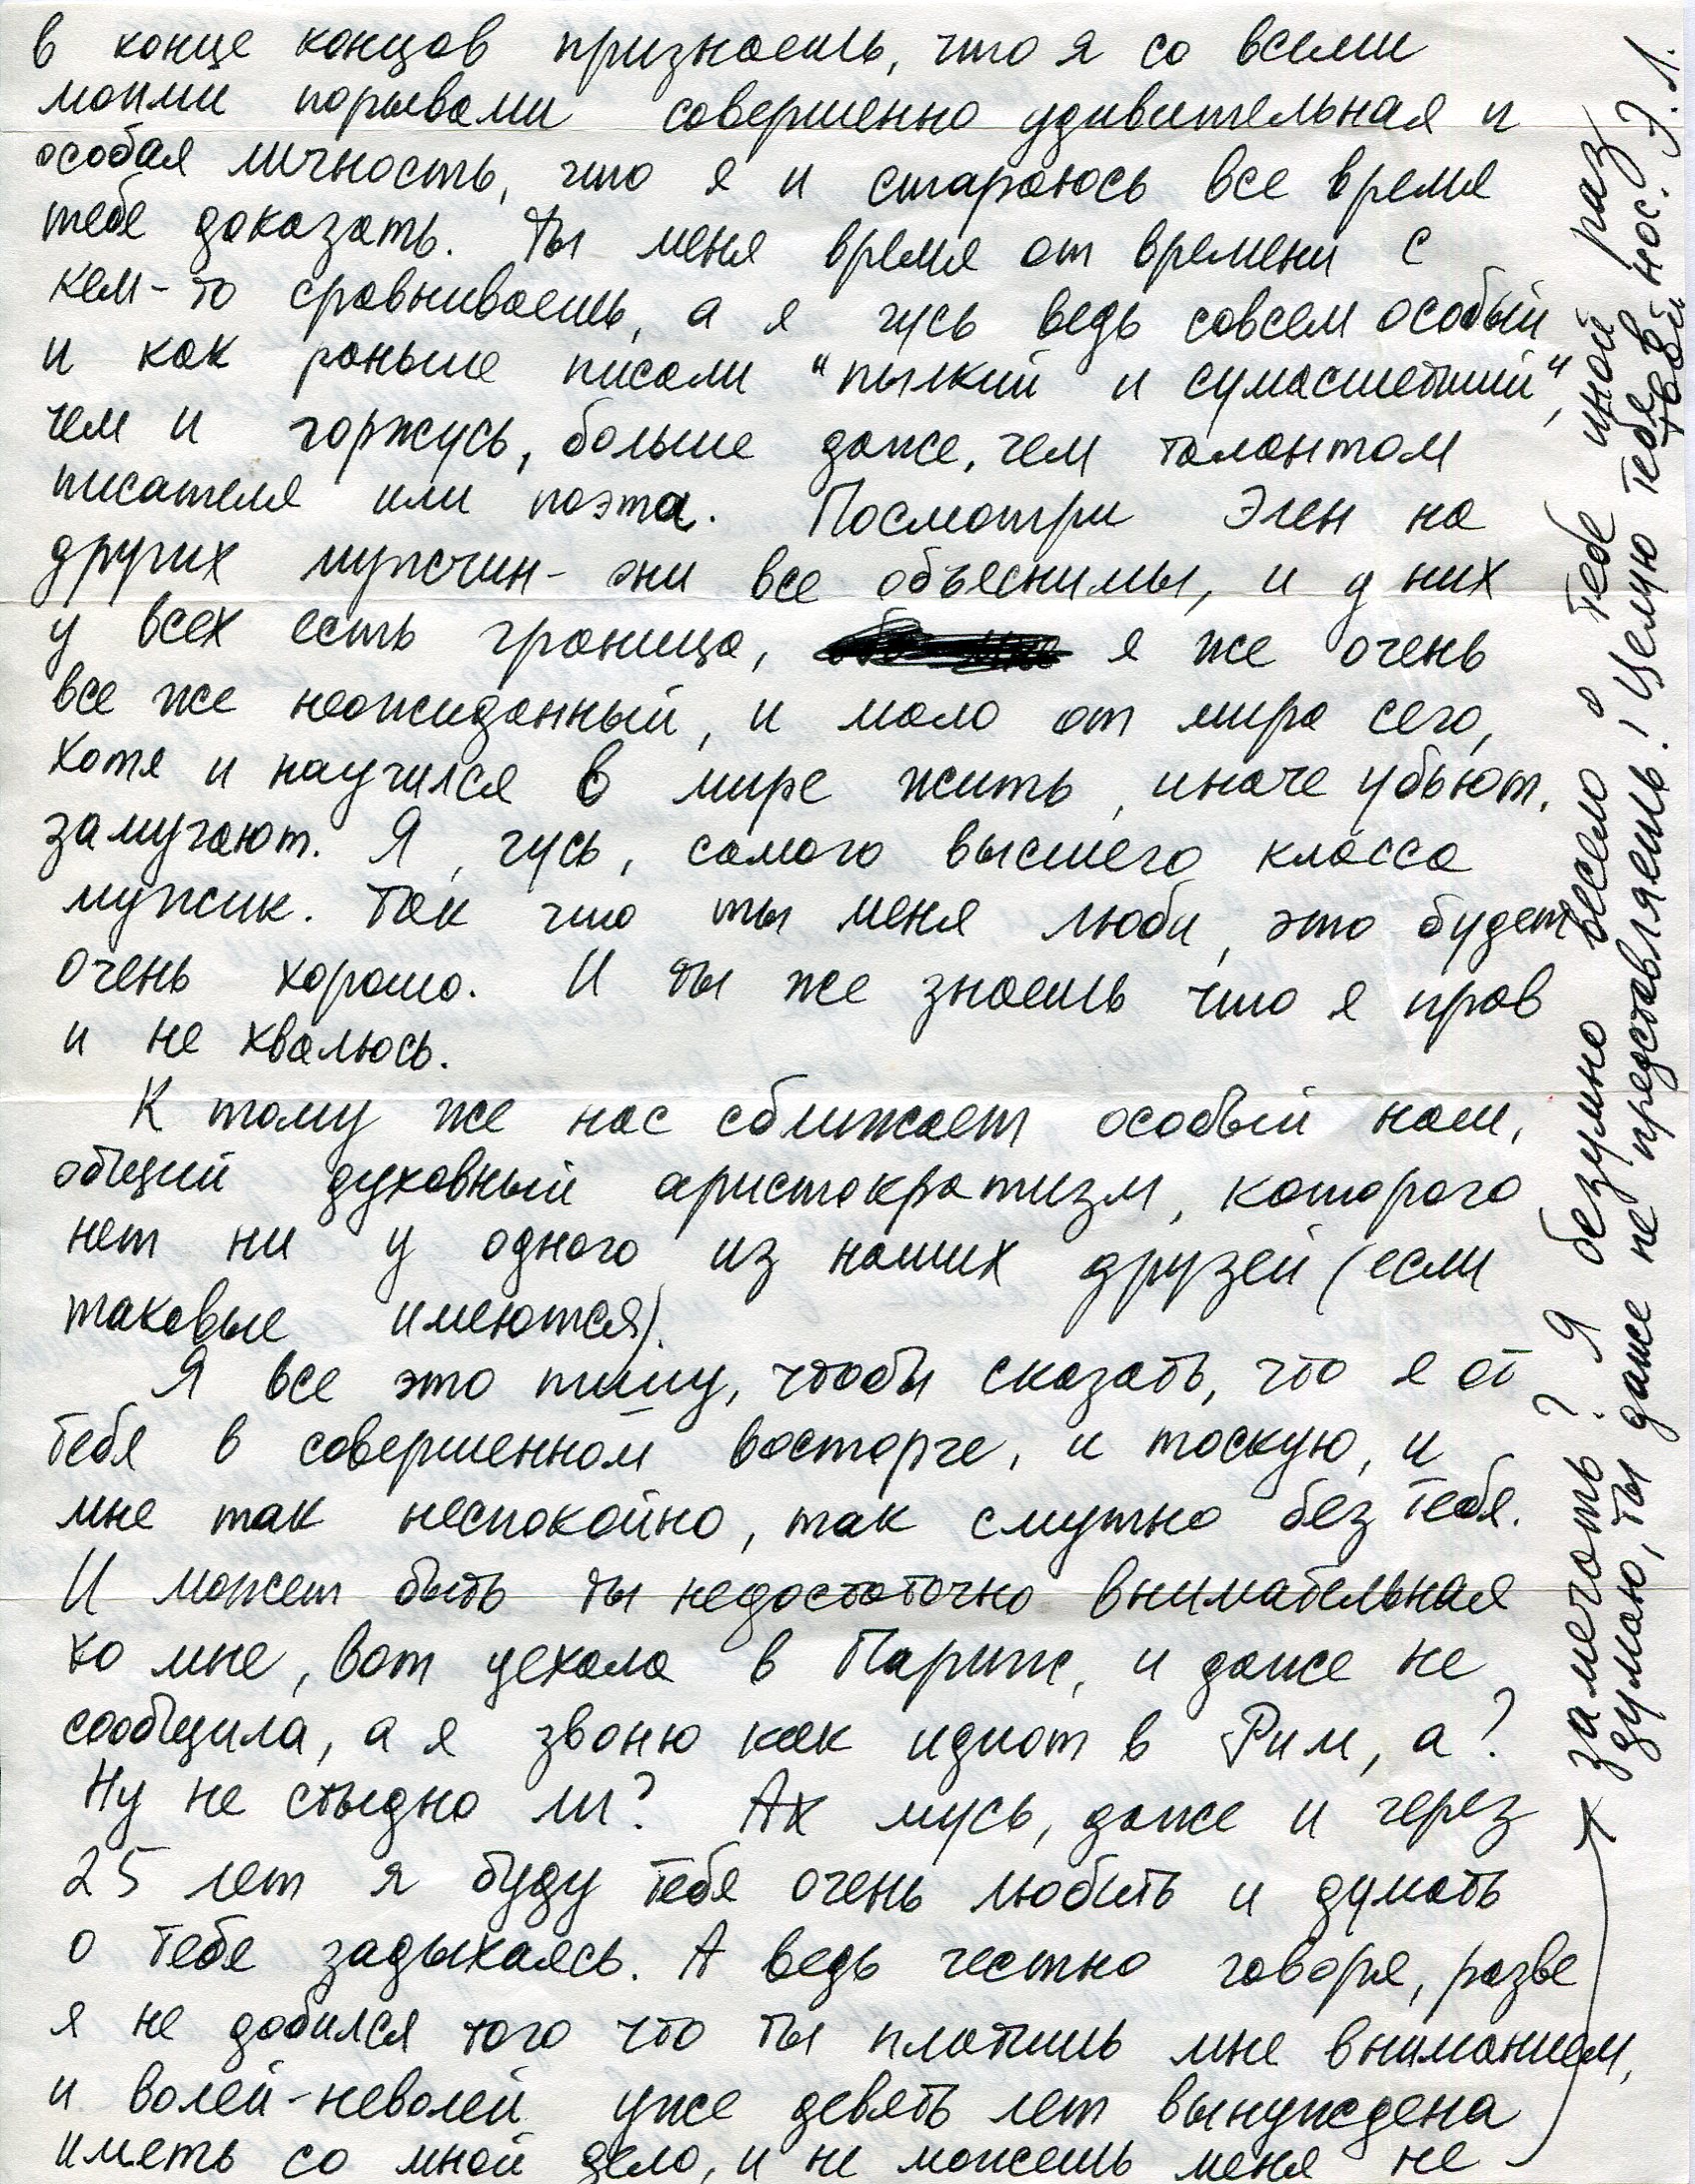 в конце концов признаешь, что я со всеми
моими порывами совершенно удивительная и
особая личность, что я и стараюсь все время
тебе доказать. Ты меня время от времени с
кем-то сравниваешь, а я гусь ведь совсем особый
и как раньше писали "пылкий и сумасшетший",
чем и горжусь, больше даже, чем талантом
писателя или поэта. Посмотри Элен на
других мужчин - они все объяснимы, и у них
у всех есть граница, я же очень
все же неожиданный, и мало от мира сего,
хотя и научился в мире жить, иначе убьют,
замучают. Я, гусь, самого высшего класса
мужик. Так что ты меня люби, это будет
очень хорошо. И ты же знаешь что я прав
и не хвалюсь.
К тому же нас сближает особый наш,
общий духовный аристократизм, которого
нет ни у одного из наших друзей (если
таковые имеются).
Я все это пишу, чтобы сказать, что я от
тебя в совершенном восторге, и тоскую, и
мне так неспокойно, так смутно без тебя.
И может быть ты недостаточно внимательная
ко мне, вот уехала в Париж, и даже не
сообщила, а я звоню как идиот в Рим, а?
Ну не стыдно ли? Ах мусь, даже и через
25 лет я буду тебя очень любить и думать
о тебе задыхаясь. А ведь честно говоря, разве
я не добился того что ты платишь мне вниманием,
и волей-неволей уже девять лет вынуждена
иметь со мной дело, и не можешь меня не
замечать? Я безумно весело о тебе иной раз
думаю, ты даже не представляешь! Целую тебя в нос.
твой Э. Л.